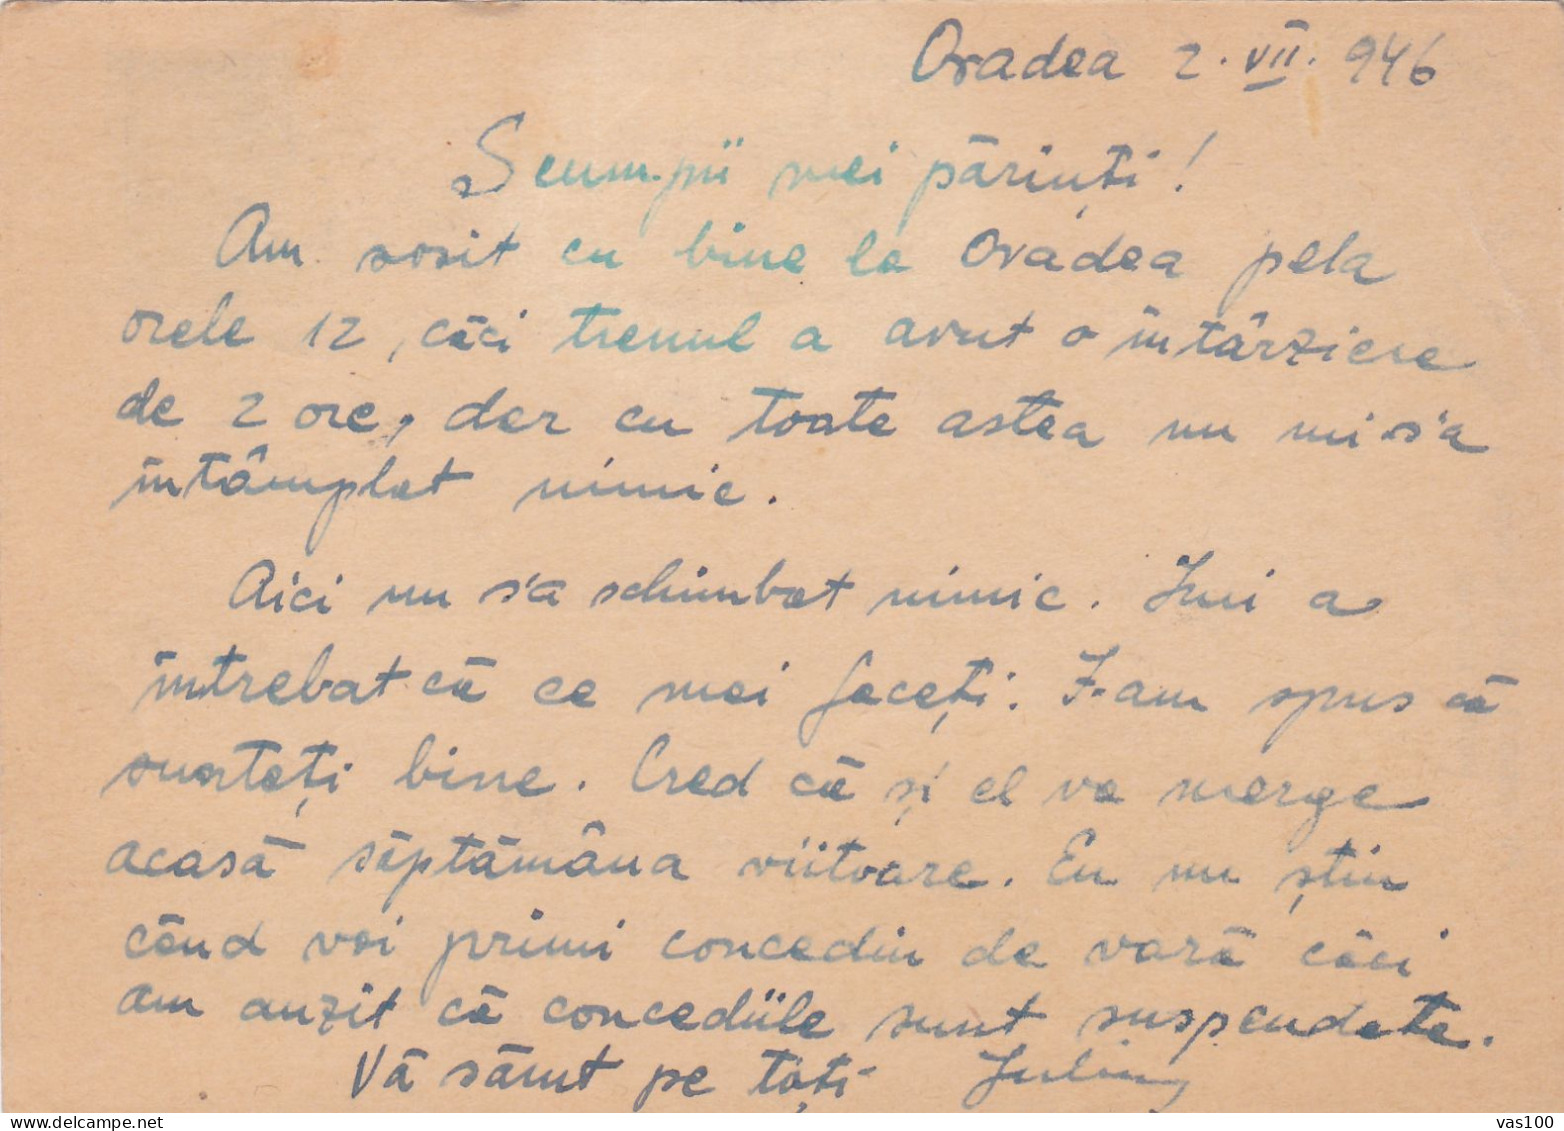 Oradea 2. VII. 946
Scumpii mei părinți!
Am sosit cu bine la Oradea pela
orele 12, căci trenul a avut o întârziere
de 2 ore, dar cu toate astea nu mi s'a
întâmplat nimic.
Aici nu s'a schimbat nimic. a
întrebat că ce mai faceți. I-am spus că
sunteți bine. Cred că și el va merge
acasă săptămâna viitoare. Eu nu știu
când voi primi concediu de vară căci
am auzit că concediile sunt suspendate.
Vă sărut pe toți
delcampe.net
vas100